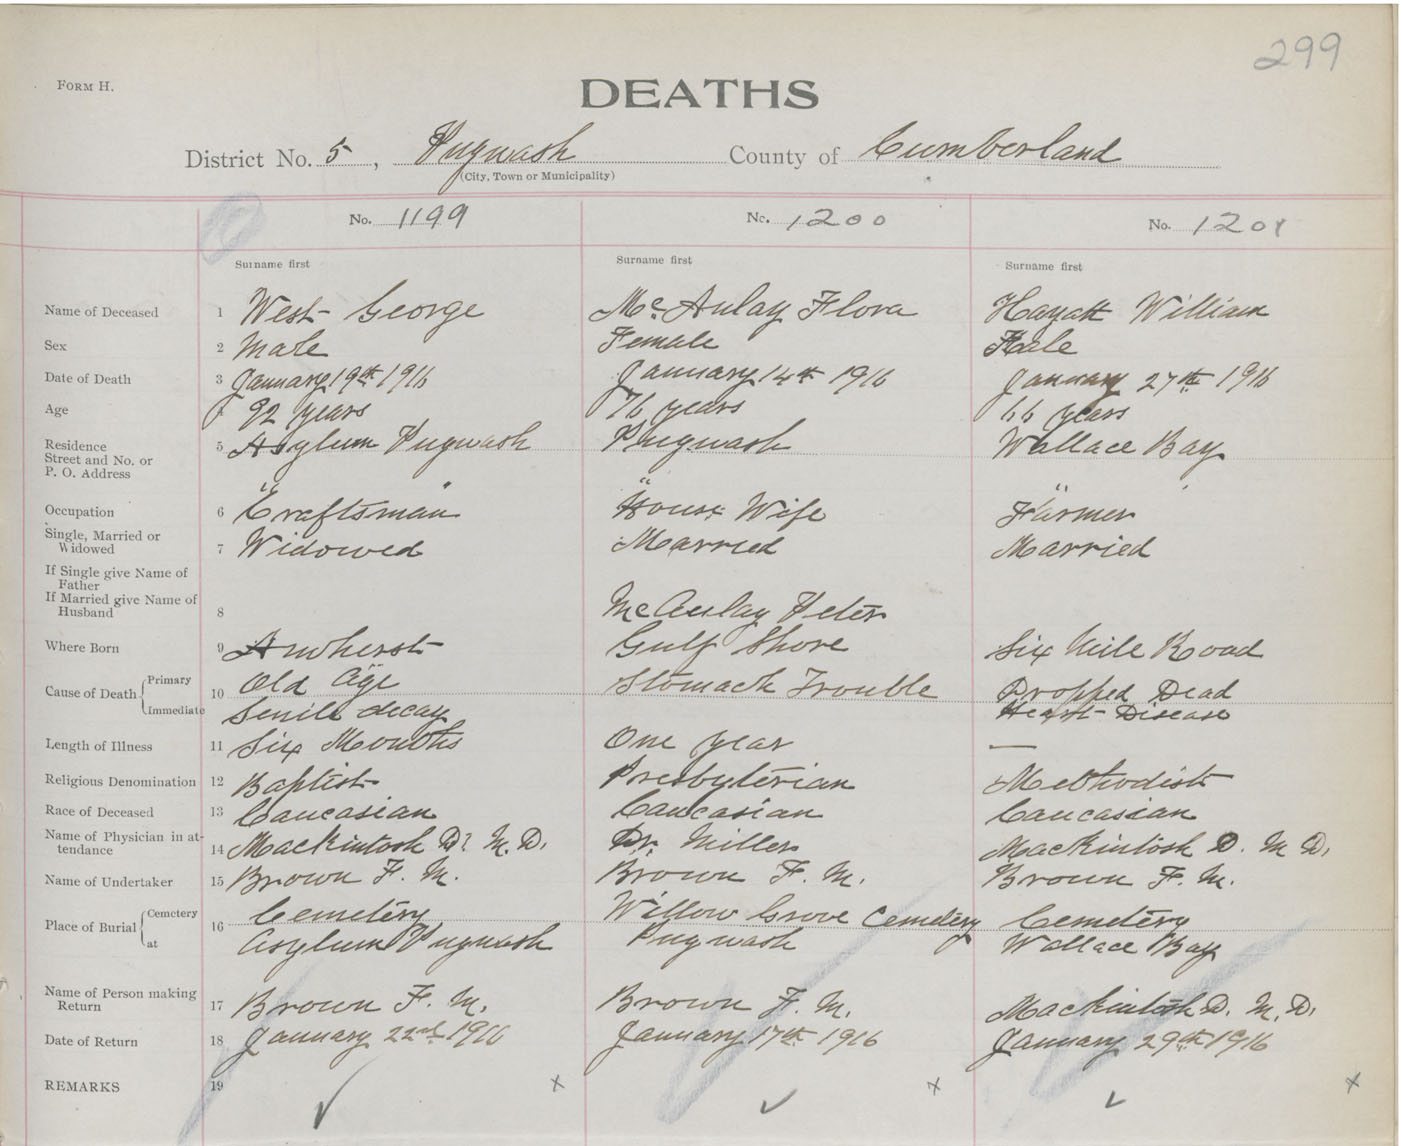 299
FORM H.
DEATHS
District No. 5, Pugwash County of Cumberland
(City, Town or Municipality)
No. 1199 No. 1200 No. 1201
Surname first Surname first Surname first
Name of Deceased 1 West George McAulay Flora Hayatt William
Sex 2 Male Female Male
Date of Death 3 January 19th 1916 January 14th 1916 January 27th 1916
Age 4 92 years 76 years 66 years
Residence Street and No. or P. O. Address 5 Asylum Pugwash Pugwash Wallace Bay
Occupation 6 "Craftsman" "House Wife "Farmer
Single, Married or Widowed 7 Widowed Married Married
If Single give Name of Father
If Married give Name of Husband 8 McAulay Peter
Where Born 9 Amherst Gulf Shore Six Mile Road
Cause of Death Primary 10 Old Age Stomach Trouble Dropped Dead
Immediate Senile decay Heart Disease
Length of Illness 11 Six Months One year —
Religious Denomination 12 Baptist Presbyterian Methodist
Race of Deceased 13 Caucasian Caucasian Caucasian
Name of Physician in attendance 14 Mackintosh D. M.D. Dr. Miller Mackintosh D. M. D.
Name of Undertaker 15 Brown F. M. Brown F. M. Brown F. M.
Place of Burial Cemetery 16 Cemetery Willow Grove Cemetery Cemetery
at Asylum Pugwash Pugwash Wallace Bay
Name of Person making Return 17 Brown F. M. Brown F. M. Mackintosh D. M. D.
Date of Return 18 January 22nd 1916 January 17th 1916 January 29th 1916
REMARKS 19 x x x